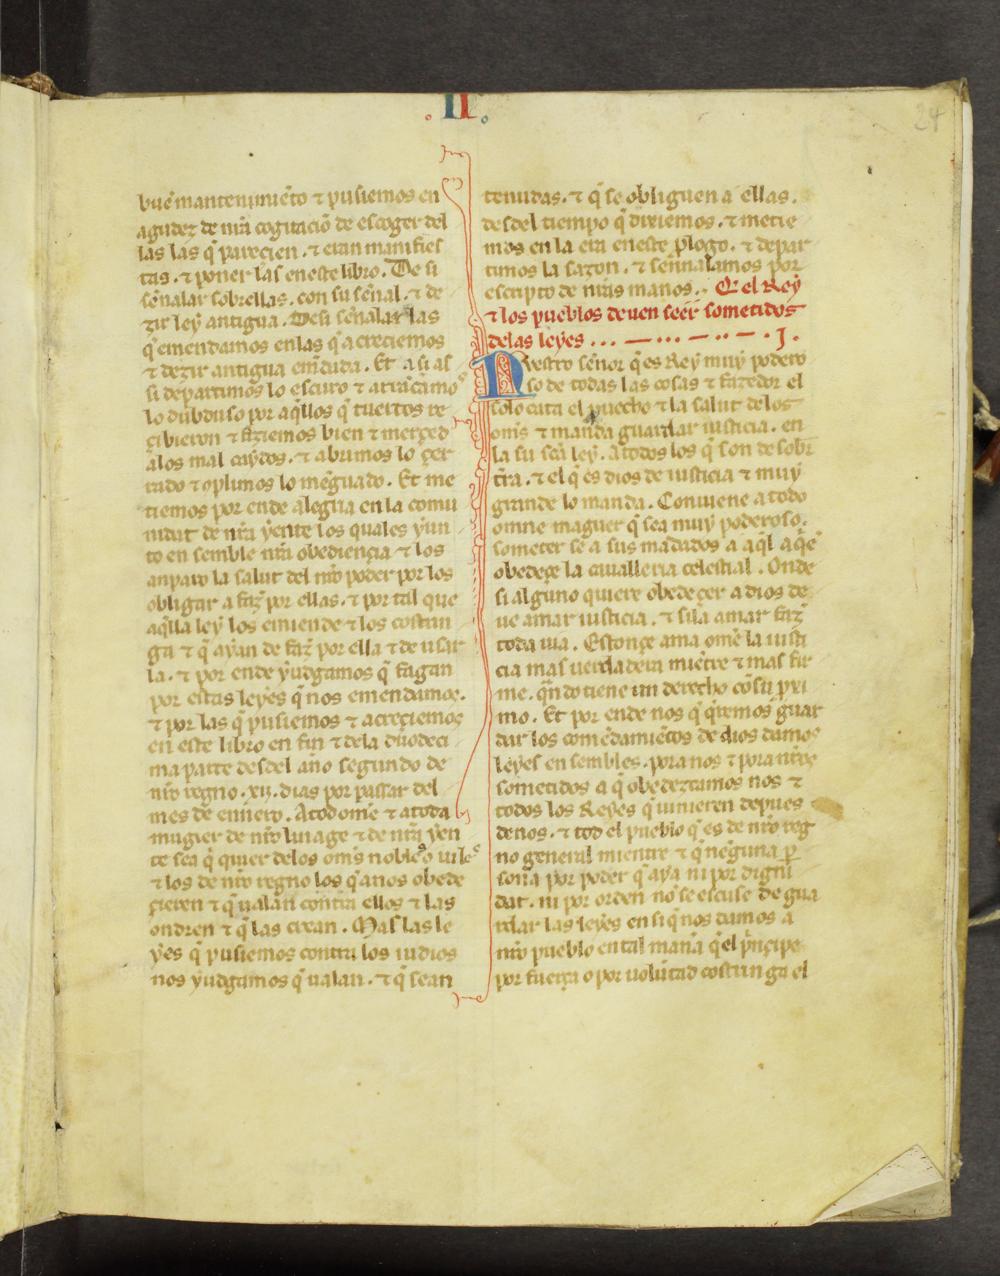 .II.
24
buē mantenimiēto ⁊ pusiemos en
agudez de nr̄a cogitaciō de escoger del
las las q̄ parecien. ⁊ eran manifies
tas. ⁊ poner las en este libro. De si
sēnalar sobrellas. con su sēnal. ⁊ de
zir ley antigua. Desi sēnalar las
q̄ emendamos en las q̄ acreciemos
⁊ dezir antigua emēdada. Et asi as
si departimos lo escuro ⁊
lo dubduso por aq̄llos q̄ tuertos re
cibieron ⁊ fiziemos bien ⁊ merçed
a los mal caydos. ⁊ abrimos lo çer
rado ⁊ oplimos lo mēguado. Et me
tiemos por ende alegria en la comu
nidat de nr̄a yente los quales yun
to en semble nr̄a obediençia ⁊ los
anparo la salut del nr̄o poder por los
obligar a faz̄ por ellas. ⁊ por tal que
aq̄lla ley los emiende ⁊ los costrin
ga ⁊ q̄ ayan de faz̄ por ella ⁊ de usar
la. ⁊ por ende yudgamos q̄ fagan
por estas leyes q̄ nos emendamos.
⁊ por las q̄ pusiemos ⁊ acreçiemos
en este libro en fin ⁊ de la duodeci
ma parte desdel año segundo de
nr̄o regno. xij. dias por passar del
mes de enero. A tod omē ⁊ a toda
mugier de nr̄o linage ⁊ de nr̄a yen
te sea q̄ quier de los om̄s nobles o viles
⁊ los de nr̄o regno los q̄ a nos obede
çieren ⁊ q̄ ualan contra ellos ⁊ las
ondren ⁊ q̄ las crean. Mas las le
yes q̄ pusiemos contra los iudios
nos yudgamos q̄ ualan. ⁊ q̄ sean
tenudas. ⁊ q̄ se obliguen a ellas.
desdel tiempo q̄ dixiemos. ⁊ metie
mos en la era en este p̄logo. ⁊ depar
timos la sazon. ⁊ sēnnalamos por
escripto de nr̄as manos. Q̄ el Rey
⁊ los pueblos deuen seer sometidos
de las leyes ... — ... — .. — . I.
Nuestro sēnor q̄ es Rey muy podero
so de todas las cosas ⁊ fazedor el
solo cata el puecho ⁊ la salut de los
om̄s ⁊ manda guardar iusticia. en
la su sc̄a ley. A todos los q̄ son de sobr̄
tr̄a. ⁊ el q̄ es dios de iusticia ⁊ muy
grande lo manda. Conuiene a todo
omne maguer q̄ sea muy poderoso.
someter se a sus mādados a aq̄l a q̄ē
obedeçe la caualleria celestial. Onde
si alguno quiere obedeçer a dios de
ue amar iusticia. ⁊ si la amar faz̄
toda uia. Estonçe ama omē la iusti
cia mas uerdadera miētre ⁊ mas fir
me. q̄ndo tiene un derecho cō su pri
mo. Et por ende nos q̄ q̄remos guar
dar los comēdamiētos de dios damos
leyes en sembles. pora nos ⁊ pora nr̄os
sometidos a q̄ obedezcamos nos ⁊
todos los Reyes q̄ uinieren depues
de nos. ⁊ tod el pueblo q̄ es de nr̄o reg
no general mientre ⁊ q̄ nēguna ꝑ
sona por poder q̄ aya ni por digni
dat. ni por orden no se escuse de gua
rdar las leyes en si q̄ nos damos a
nr̄o pueblo en tal man̄a q̄ el p̄nçipe
por fuerça o por uolūtad costringa el